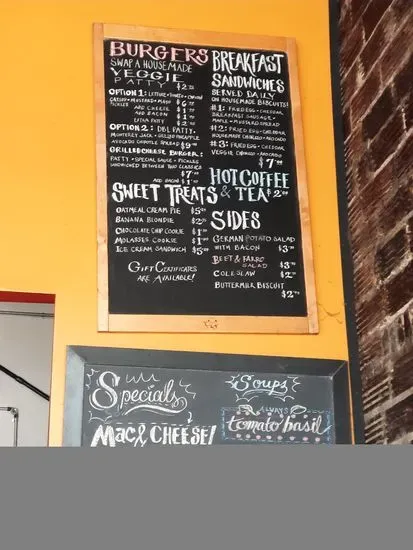 BURGERS
SWAP A HOUSEMADE
VEGGIE
PATTY $2
OPTION 1: LETTUCE • TOMATO • ONION
CATSUP • MUSTARD • MAYO $6
PICKLES
ADD CHEESE $1
ADD BACON $1
EXTRA PATTY $2
OPTION 2: DBL PATTY,
MONTEREY JACK • GRILLED PINEAPPLE
AVOCADO CHIPOTLE SPREAD $9
GRILLED CHEESE BURGER:
PATTY • SPECIAL SAUCE • PICKLES
SANDWICHED BETWEEN TWO CLASSICS
$7
ADD BACON $1
SWEET TREATS
OATMEAL CREAM PIE $5
BANANA BLONDIE $2
CHOCOLATE CHIP COOKIE $1
MOLASSES COOKIE $1
ICE CREAM SANDWICH $5
GIFT CERTIFICATES
ARE AVAILABLE!
BREAKFAST
SANDWICHES
SERVED DAILY
ON HOUSEMADE BISCUITS!
#1: FRIED EGG • CHEDDAR
BREAKFAST SAUSAGE •
MAPLE • MUSTARD SPREAD
#2: FRIED EGG • CHEDDAR
HOUSEMADE CHORIZO • AVOCADO
#3: FRIED EGG • CHEDDAR
VEGGIE CHORIZO • AVOCADO
$7
HOT COFFEE
& TEA $2
SIDES
GERMAN POTATO SALAD
WITH BACON $3
BEET & FARRO
SALAD $3
COLESLAW $2
BUTTERMILK BISCUIT
$2
Specials
MAC & CHEESE!
Soups
ALWAYS
tomato basil